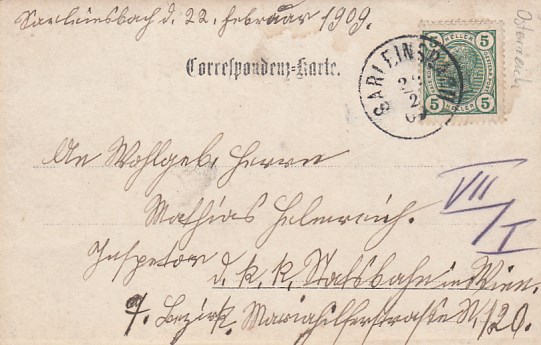 Sarleinsbach d. 22. Februar 1909.
Österreich
5 HELLER 5
5 HELLER 5
SARLEINSBACH
22
2
09
Correspondenz-Karte.
An Wohlgeb. Herrn
Mathias Helmreich.
VII/I
Inspetor
d. k. k. Statsbahn in Wien.
7. Bezirk. Mariahilferstraße N. 120.